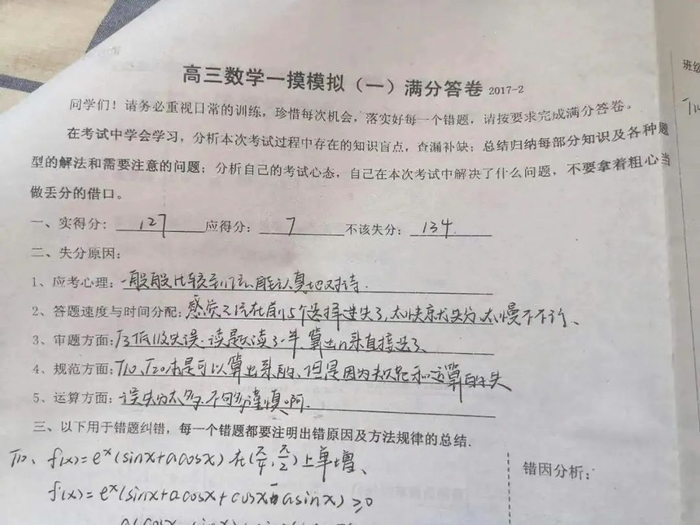 高三数学一摸模拟（一）满分答卷 2017-2
班级
同学们！请务必重视日常的训练，珍惜每次机会，落实好每一个错题，请按要求完成满分答卷。
在考试中学会学习，分析本次考试过程中存在的知识盲点，查漏补缺；总结归纳每部分知识及各种题
型的解法和需要注意的问题；分析自己的考试心态，自己在本次考试中解决了什么问题，不要拿着粗心当
做丢分的借口。
一、实得分：127 应得分：7 不该失分：134
二、失分原因：
1、应考心理：一般般 比较 能认真地对待.
2、答题速度与时间分配：感觉 在前15个选择 失了,太快就失分 太慢不行、
3、审题方面：T3低级失误.读题读了一半 算出 来直接选了、
4、规范方面：T10、T20本是可以算出来的、但是因为 和运算的失
5、运算方面：失分太多,不够谨慎啊.
三、以下用于错题纠错，每一个错题都要注明出错原因及方法规律的总结.
T10、f(x)=eˣ(sinx+acosx) 在(π/4, π/2)上单增、
f'(x)=eˣ(sinx+acosx+cosx-asinx)≥0
错因分析：